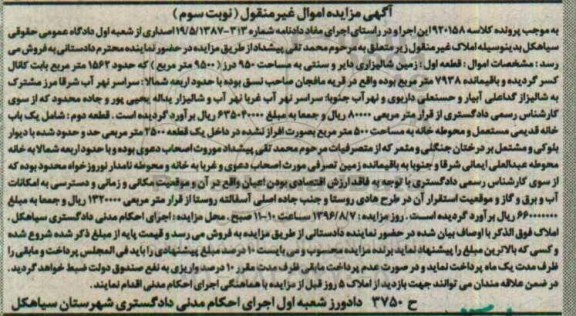 آگهی مزایده اموال غیر منقول ( نوبت سوم )
به موجب پرونده کلاسه ۹۲۰۱۵۸ این اجرا و در راستای اجرای مفاد دادنامه شماره ۳۱۳-۱۹/۵/۱۳۸۷ اصداری از شعبه اول دادگاه عمومی حقوقی
سیاهکل بدینوسیله املاک غیر منقول زیر متعلق به مرحوم محمد تقی پیشداد از طریق مزایده در حضور نماینده محترم دادستانی به فروش می
رسد : مشخصات اموال : قطعه اول : زمین شالیزاری دایر و سنتی به مساحت ۹۵۰ درز ( ۹۵۰۰ متر مربع ) که حدود ۱۵۶۲ متر مربع بابت کانال
کسر گردیده و باقیمانده ۷۹۳۸ متر مربع بوده واقع در قریه مافجان صاحب نسق بوده با حدود اربعه شمالا : سراسر نهر آب شرقا مرز مشترک
به شالیزار گداعلی آبیار و حسنعلی داریوی و نهر آب جنوبا: سراسر نهر آب غربا نهر آب و شالیزار یداله یحیی پور و جاده محدود که از سوی
کارشناس رسمی دادگستری از قرار متر مربعی ۸۰۰۰۰ ریال و جمعا به مبلغ ۶۳۵۰۴۰۰۰۰ ریال برآورد گردیده است . قطعه دوم : شامل یک باب
خانه قدیمی مستعمل و محوطه خانه به مساحت ۵۰۰ متر مربع بصورت افراز نشده در داخل یک قطعه ۲۵۰۰ متر مربعی حد و حدود شده با دیوار
بلوکی و مشتمل بر درختان جنگلی و مثمر که از متصرفیات مرحوم محمد تقی پیشداد موروث اصحاب دعوی بوده و با حدود اربعه شمالا به خانه
محوطه عبدالعلی ایمانی شرقا و جنوبا به باقیمانده زمین تصرفی مورث اصحاب دعوی و غربا به خانه و محوطه نامدار نوروز خواه محدود بوده که
از سوی کارشناس رسمی دادگستری با توجه به فاقد ارزش اقتصادی بودن اعیان واقع در آن و موقعیت مکانی و زمانی و دسترسی به امکانات
آب و برق و گاز و موقعیت استقرار آن در طرح هادی روستا و جنب جاده اصلی آسفالته روستا از قرار متر مربعی ۱۳۲۰۰۰۰ ریال و جمعا به مبلغ
۶۶۰۰۰۰۰۰۰ ریال برآورد گردیده است . روز مزایده : ۱۳۹۶/۸/۷ ساعت ۱۰-۱۱ صبح . محل مزایده : اجرای احکام مدنی دادگستری سیاهکل .
املاک فوق الذکر با اوصاف بیان شده در حضور نماینده دادستانی از طریق مزایده به فروش می رسد و قیمت پایه از مبلغ ذکر شده شروع شده
و کسی که بالاترین مبلغ را پیشنهاد نماید برنده مزایده محسوب و می بایست ۱۰ درصد مبلغ پیشنهادی را باید فی المجلس پرداخت و مابقی را
ظرف مدت یک ماه پرداخت نماید و در صورت عدم پرداخت مابقی ظرف مدت مقرر ۱۰ درصد واریزی به نفع صندوق دولت ضبط خواهد گردید.
در ضمن علاقه مندان می توانند جهت بازدید از املاک ۵ روز قبل از مزایده با هماهنگی اجرای احکام مدنی اقدام نمایند.
ح ۳۷۵۰ دادورز شعبه اول اجرای احکام مدنی دادگستری شهرستان سیاهکل